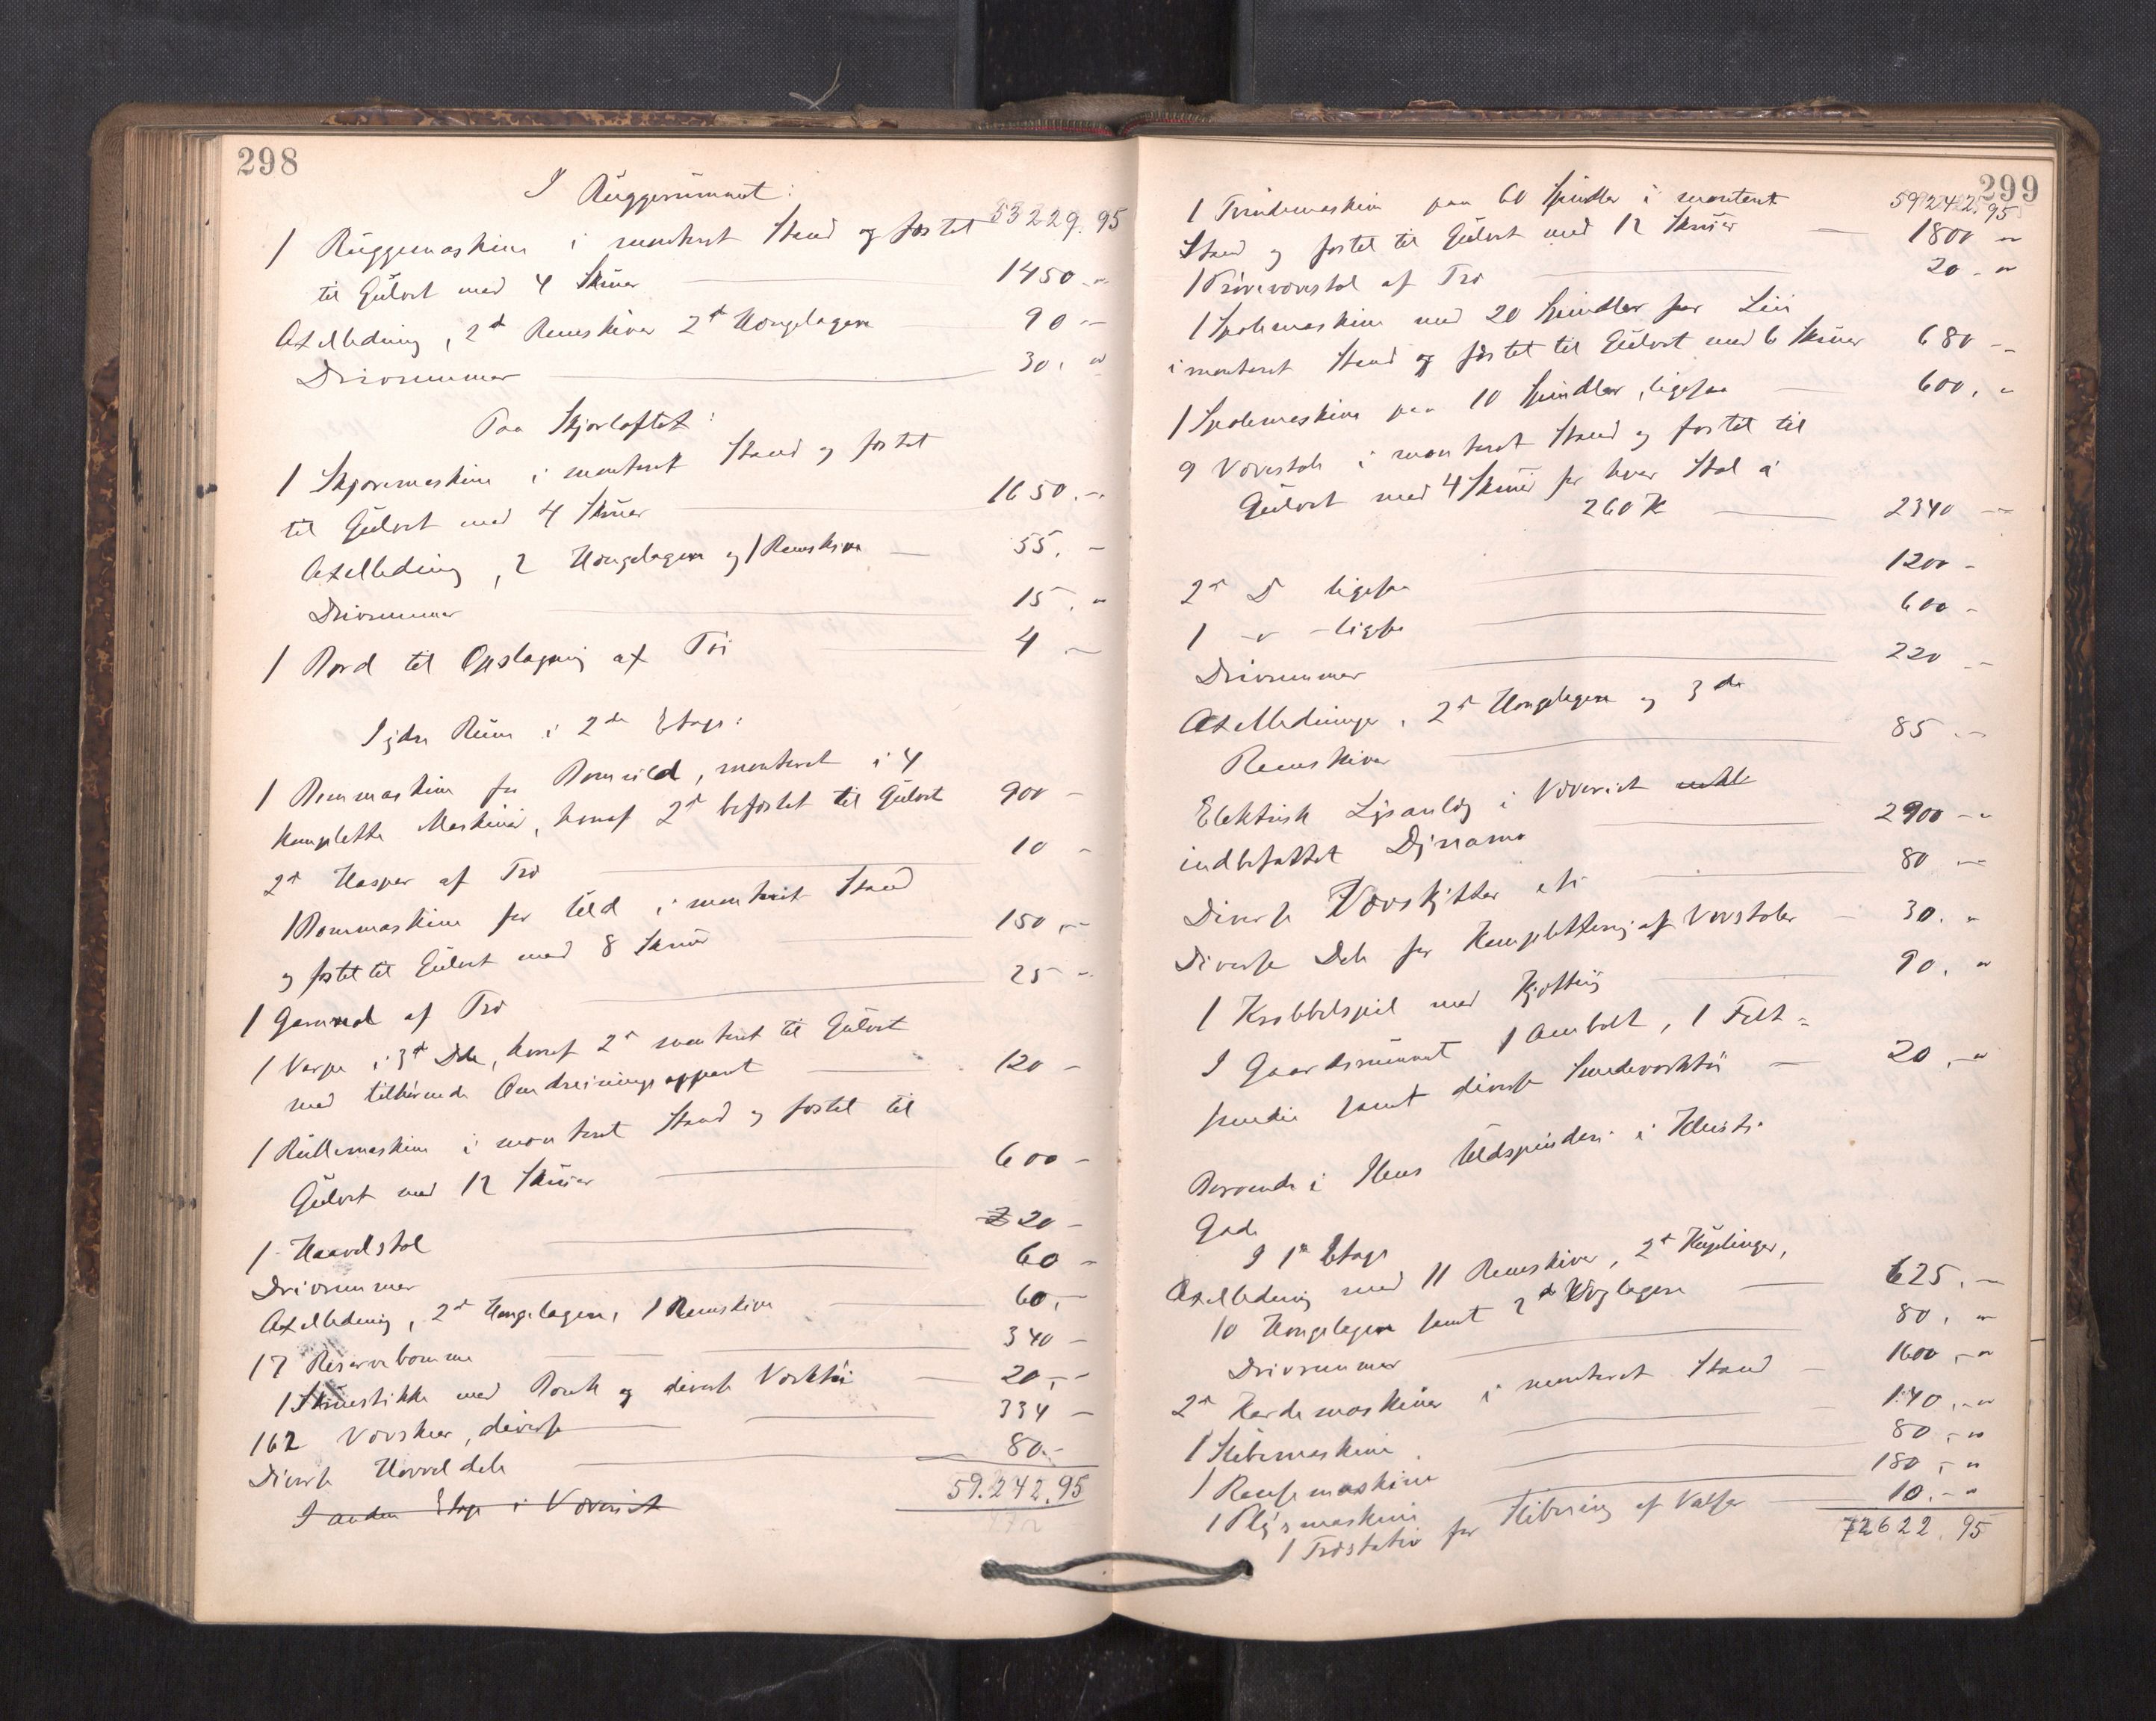 298
I Ruggerummet:
53229.95
1 Ruggemaskine i monteret Stand og fæstet
til Gulvet med 4 Skruer 1450.-
Axelledning, 2d Remskiver 2d Hængelagere 90.-
Drivremmer 30.-
Paa Skjærloftet:
1 Skjæremaskine i monteret Stand og fæstet
til Gulvet med 4 Skruer 1650.-
Axelledning, 2 Hængelagere og 1 Remskive 55.-
Drivremmer 15.-
1 Bord til Opslagning af Tøi 4.-
I ydre Rum i 2den Etage:
1 Bommaskine for Bomuld, monteret i 4
komplette Maskiner, hvoraf 2d befæstet til Gulvet 900 -
2d Hasper af Træ 10 -
1 Bommaskine for Uld i monteret Stand
og fæstet til Gulvet med 8 Skruer 150.-
1 af Træ 25 -
1 Varpe i 3d Dele, hvoraf 2d monteret til Gulvet
med tilhørende Omdreiningsapparat 120 -
1 Rullemaskine i monteret Stand og fæstet til
Gulvet med 12 Skruer 600 -
1 Haavelstol 20 -
Drivremmer 60 -
Axelledning, 2d Hængelagere, 1 Remskive 60.-
17 Reservebomme 340 -
1 Skruestikke med Bænk og diverse Værktøi 20.-
162 Vævskeer, diverse 334 -
Diverse Hovveldele 80.-
I anden Etage i Væveriet
59.242.95
299
59242.95
1 Tvindemaskine paa 60 Spindler i monteret
Stand og fæstet til Gulvet med 12 Skruer - 1800 -
1 Prøvevævstol af Træ 20.-
1 Spolemaskine med 20 Spindler for Lin
i monteret Stand og fæstet til Gulvet med 6 Skruer 680 -
1 Spolemaskine paa 10 Spindler, ligesaa 600.-
9 Vævstole i monteret Stand og fæstet til
Gulvet med 4 Skruer for hver Stol á
260 K 2340 -
2d D ligesaa 1200 -
1 -"- ligesaa 600 -
Drivremmer 220 -
Axelledninger, 2d Hængelagere og 3de
Remskiver 85.-
Elektrisk Lysanlæg i Væveriet
indbefattet Dynamo 2900 -
Diverse Vævskytter etc 80 -
Diverse Dele for Komplettering af Vævstoler - 30.-
1 Krabbelspil med Kjetting 90.-
I Gaardsrummet 1 Ambolt, 1 Felt-
smedie samt diverse Smedeværktøi - 20.-
Beroende i Hens Uldspinderi i
Gade
I 1ste Etage
Axelledning med 11 Remskiver, 2d Kuplinger,
10 Hængelagere samt 2de Væglagere 625.-
Drivremmer 80.-
2d Kardemaskiner i monteret Stand - 1600.-
1 Slibemaskine 140.-
1 Rensemaskine 80.-
1 Plysmaskine 180.-
1 Træstativ for Slibning af Valser 10.-
72622.95